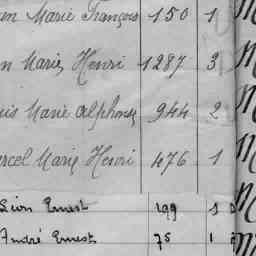 an Marie François 150 1
n Marie Henri 1287 3
uis Marie Alphonse 944 2
rcel Marie Henri 476 1
Léon Ernest 199 1
André Ernest 75 1